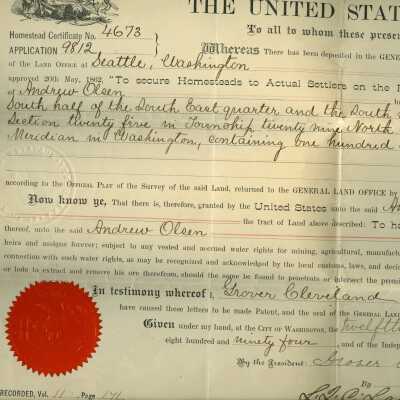 THE UNITED STA
Homestead Certificate No. 4673
To all to whom these prese
APPLICATION 9812
Whereas There has been deposited in the GENE
OF THE LAND OFFICE AT Seattle, Washington
approved 20th May, 1862, "To secure Homesteads to Actual Settlers on the
of Andrew Olsen
South half of the South East quarter and the South
Section twenty five in Township twenty nine North
Meridian in Washington, containing one hundred
according to the OFFICIAL PLAT of the Survey of the said Land, returned to the GENERAL LAND OFFICE by
Now know ye, That there is, therefore, granted by the United States unto the said An
the tract of Land above described: To ho
thereof, unto the said Andrew Olsen
heirs and assigns forever; subject to any vested and accrued water rights for mining, agricultural, manufac
connection with such water rights, as may be recognized and acknowledged by the local customs, laws, and deci
or lode to extract and remove his ore therefrom, should the same be found to penetrate or intersect the premi
In testimony whereof I, Grover Cleveland
have caused these letters to be made Patent, and the seal of the GENERAL LAND
Given under my hand, at the CITY OF WASHINGTON, the twelfth
eight hundred and ninety four, and of the Indepen
By the President: Grover
By
RECORDED, Vol. 11, Page